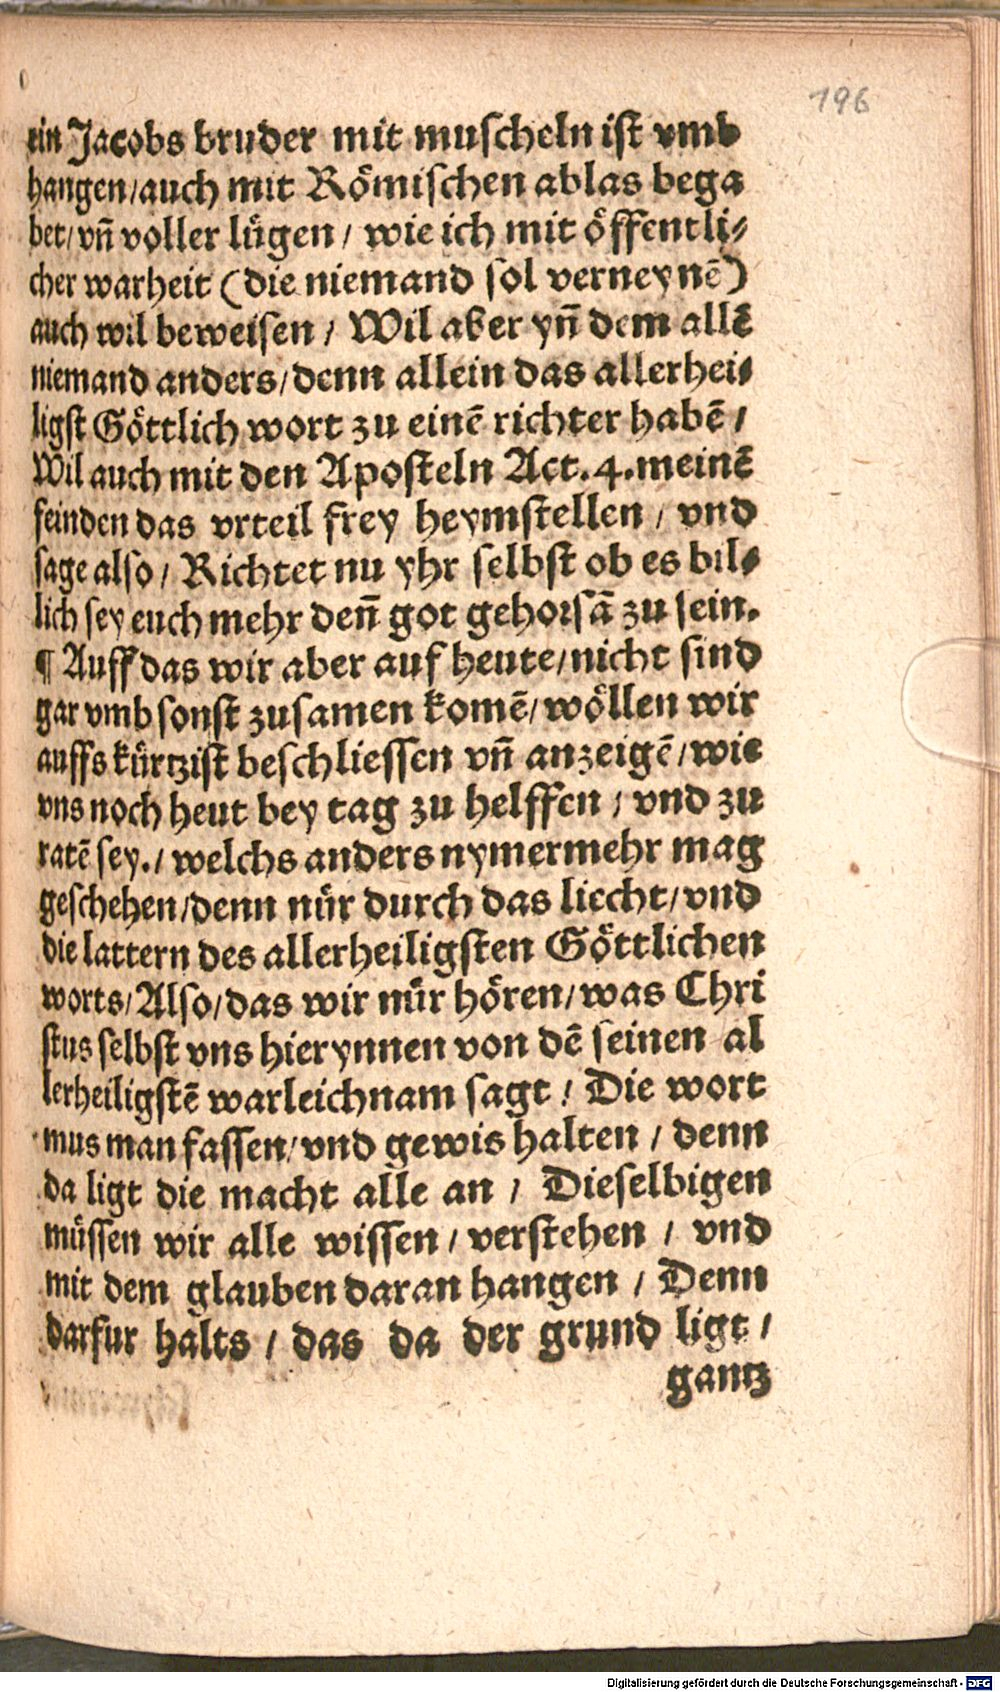 196
ein Jacobs bruder mit muscheln ist vmb
hangen/auch mit Römischen ablas bega
bet/vñ voller lügen/ wie ich mit öffentli⸗
cher warheit (die niemand sol verneynē)
auch wil beweisen/ Wil aber yñ dem allē
niemand anders/denn allein das allerhei⸗
ligst Göttlich wort zu einē richter habē/
Wil auch mit den Aposteln Act.4.meinē
feinden das vrteil frey heymstellen/ vnd
sage also/ Richtet nu yhr selbst ob es bil⸗
lich sey euch mehr deñ got gehorsā zu sein.
¶ Auff das wir aber auf heute/nicht sind
gar vmb sonst zusamen komē/wöllen wir
auffs kürtzist beschliessen vñ anzeigē/wie
vns noch heut bey tag zu helffen/ vnd zu
ratē sey./ welchs anders nymermehr mag
geschehen/denn nür durch das liecht/vnd
die lattern des allerheiligsten Göttlichen
worts/Also/das wir nür hören/was Chri
stus selbst vns hierynnen von dē seinen al
lerheiligstē warleichnam sagt/ Die wort
mus man fassen/vnd gewis halten/ denn
da ligt die macht alle an/ Dieselbigen
müssen wir alle wissen/ verstehen/ vnd
mit dem glauben daran hangen/ Denn
darfur halts/ das da der grund ligt/
gantz
Digitalisierung gefördert durch die Deutsche Forschungsgemeinschaft - DFG